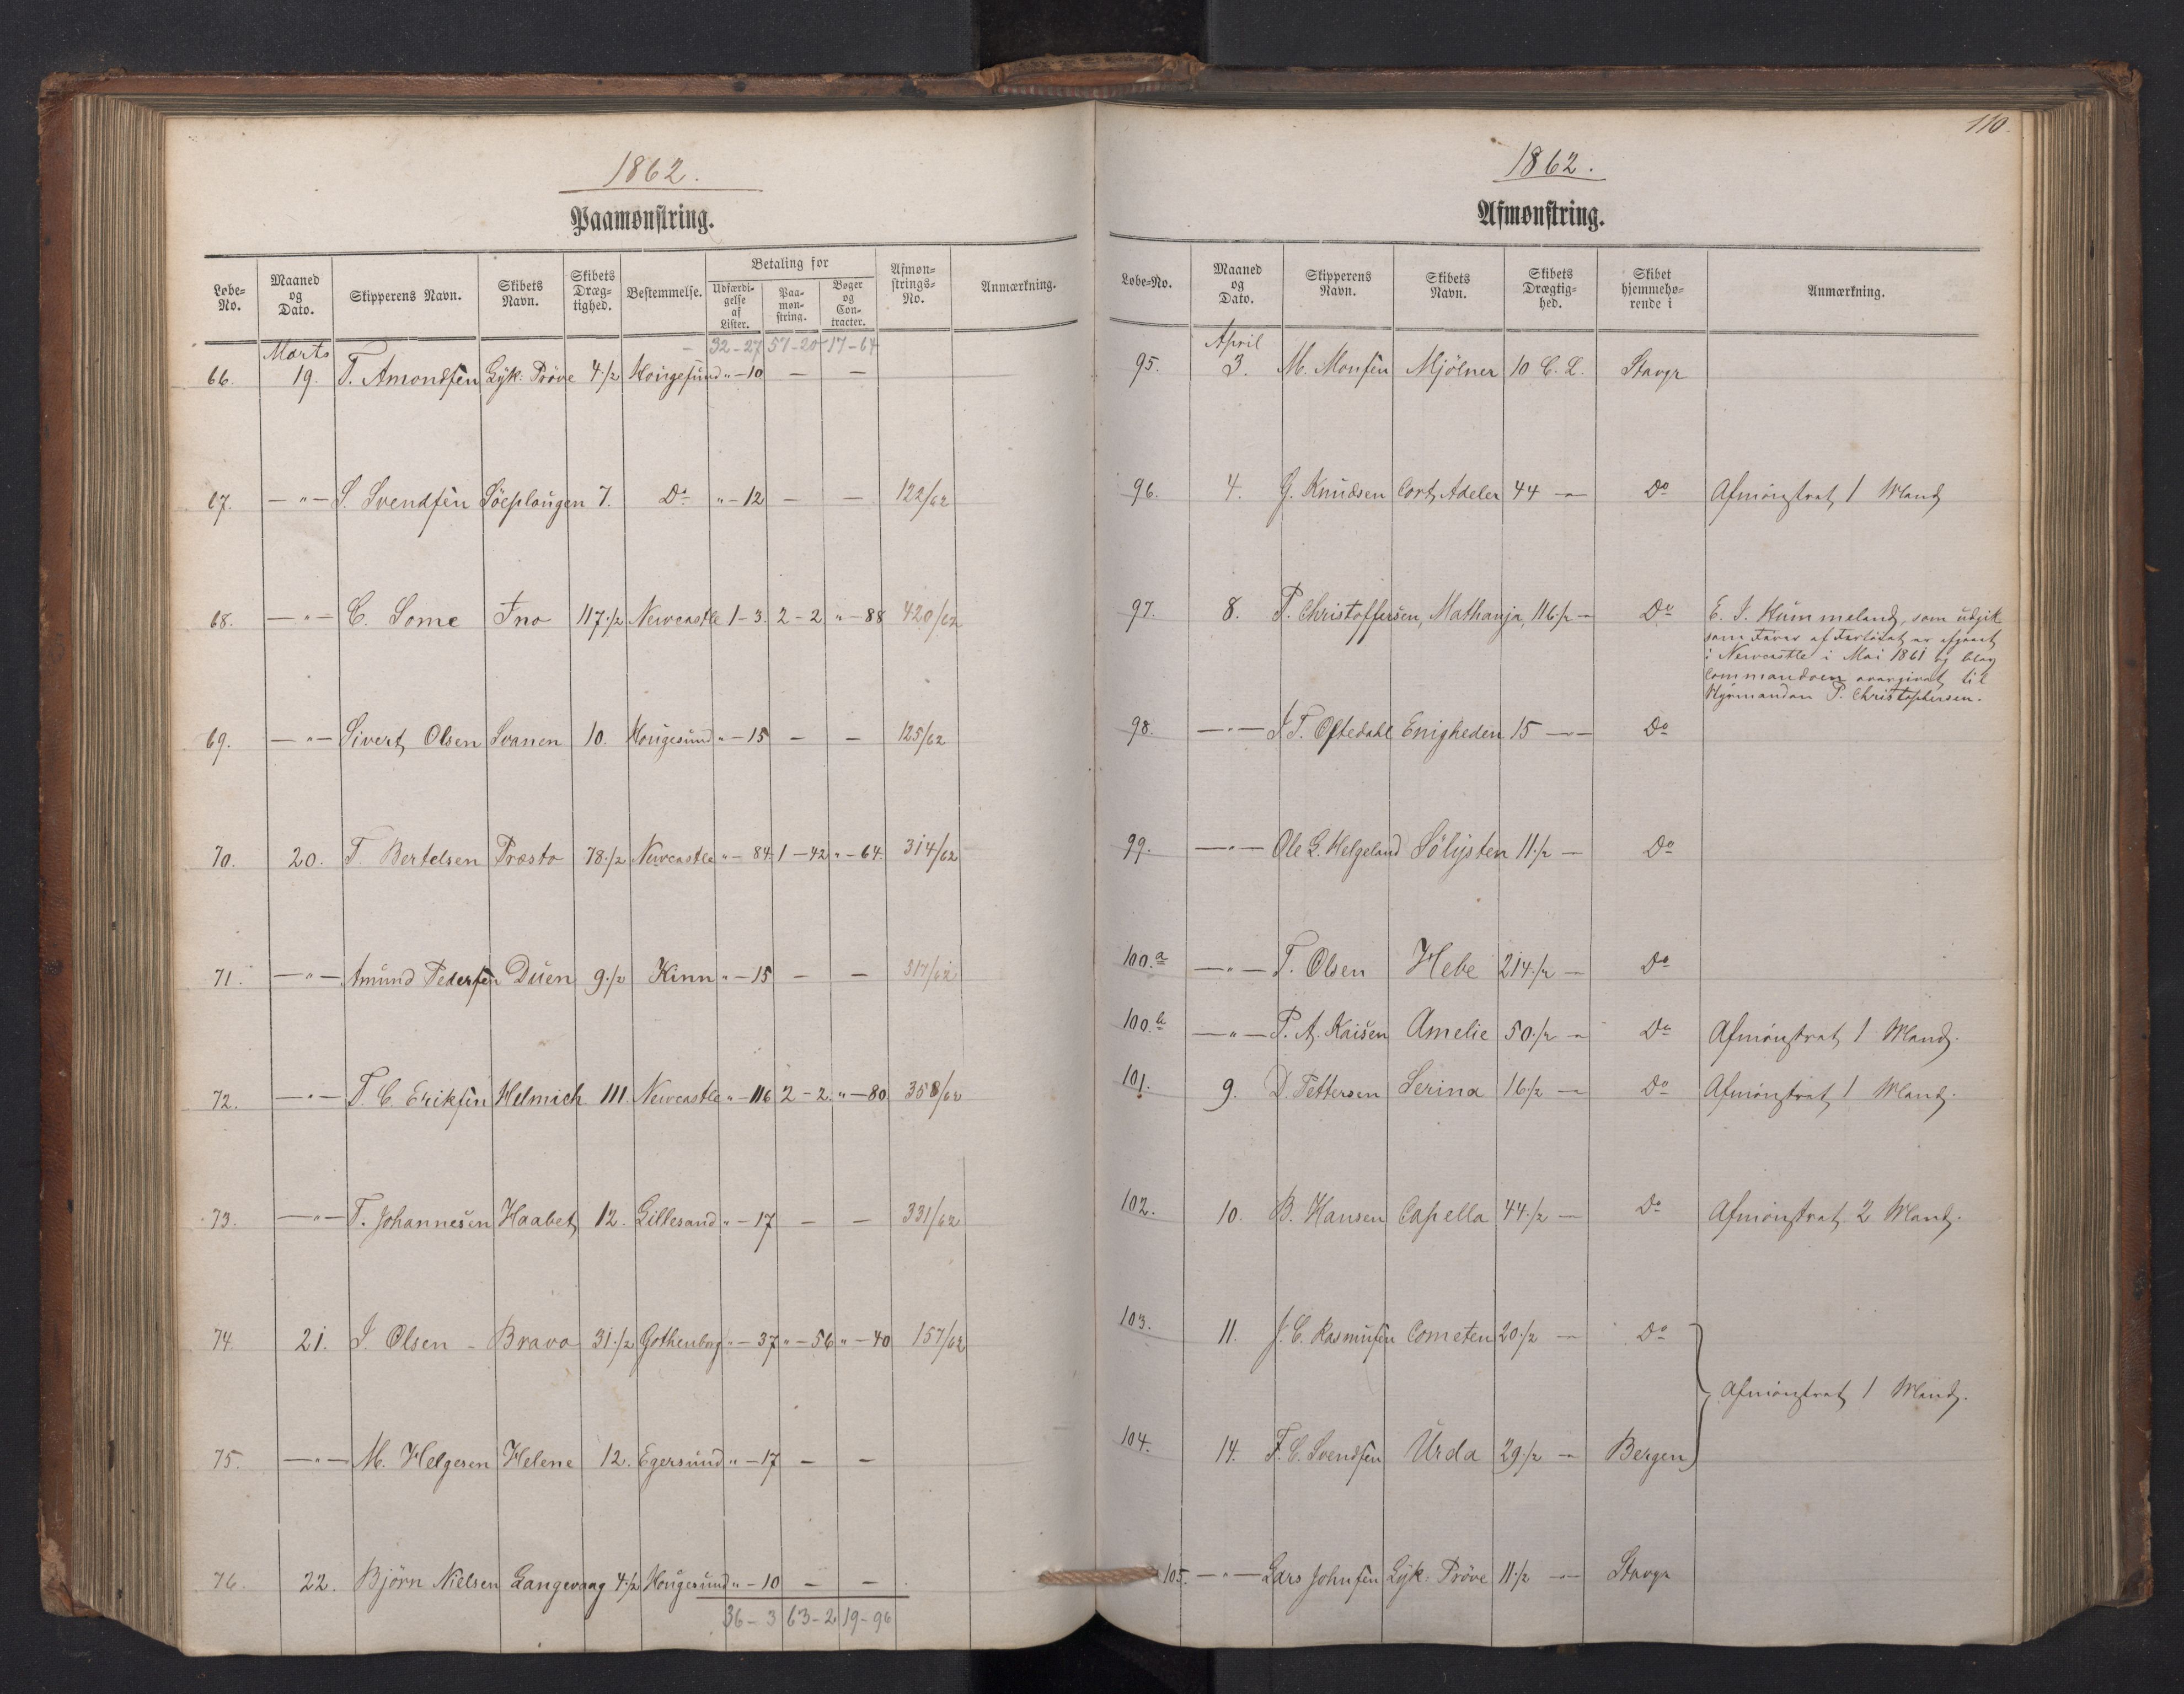 1862.
Paamønstring.
Løbe-No. Maaned og Dato. Skipperens Navn. Skibets Navn. Skibets Drægtighed. Bestemmelse. Betaling for Udfærdigelse af Lister. Paamønstring. Bøger og Contracter. Afmønstrings-No. Anmærkning.
Marts 32-27 57-20 17-64
66. 19. T. Amondsen Lyk: Prøve 4 1/2 Hougesund " - 10 — —
67. — " — S. Svendsen Söeplougen 7. Do " - 12 — — 122/62
68. — " — C. Some Ino 117 1/2 Newcastle 1-3. 2-2 " - 88 420/62
69. — " — Sivert Olsen Svanen 10. Hougesund " - 15 — — 125/62
70. 20. T. Bertelsen Præsto 78 1/2 Newcastle " - 84. 1-42 " - 64. 314/62
71. — " — Amund Pedersen Duen 9 1/2 Kinn " - 15 — — 317/62
72. — " — T. C. Eriksen Helmich 111 Newcastle " - 116 2-2. " - 80 358/62
73. — " — T. Johannesen Haabet 12. Lillesand " - 17 — — 331/62
74. 21. J. Olsen Bravo 31 1/2 Gothenborg " - 37 " - 56 " - 40 157/62
75. — " — M. Helgesen Helene 12. Egersund " - 17 — —
76. 22. Björn Nielsen Langevaag 4 1/2 Hougesund " - 10 — —
36-3 63-2 19-96
110.
1862.
Afmønstring.
Løbe-No. Maaned og Dato. Skipperens Navn. Skibets Navn. Skibets Drægtighed. Skibet hjemmehørende i Anmærkning.
April
95. 3. M. Monsen Mjölner 10 C. L. Stavgr
96. 4. G. Knudsen Cort Adeler 44 — Do Afmönstret 1 Mand
97. 8. P. Christoffersen, Mathanja, 116 1/2 — Do E. J. Hummeland, som udgik
som Fører af Fartöiet er afgaaet
i Newcastle i Mai 1861 og blev
Commandoen overgivet til
Styrmanden P. Christophersen.
98. — " — J T. Oftedahl Enigheden 15 — Do
99. — " — Ole G. Helgeland Sölysten 11 1/2 — Do
100.a — " — T. Olsen Hebe 214 1/2 — Do
100.b — " — P. A. Kaisen Amelie 50 1/2 — Do Afmönstret 1 Mand.
101. 9. D. Pettersen Serina 16 1/2 — Do Afmönstret 1 Mand.
102. 10. B. Hansen Capella 44 1/2 — Do Afmönstret 2 Mand.
103. 11. J. C. Rasmusen Cometen 20 1/2 — Do
Afmönstret 1 Mand.
104. 14. F. C. Svendsen Urda 29 1/2 — Bergen
105. — " — Lars Johnsen Lyk: Pröve 11 1/2 — Stavgr